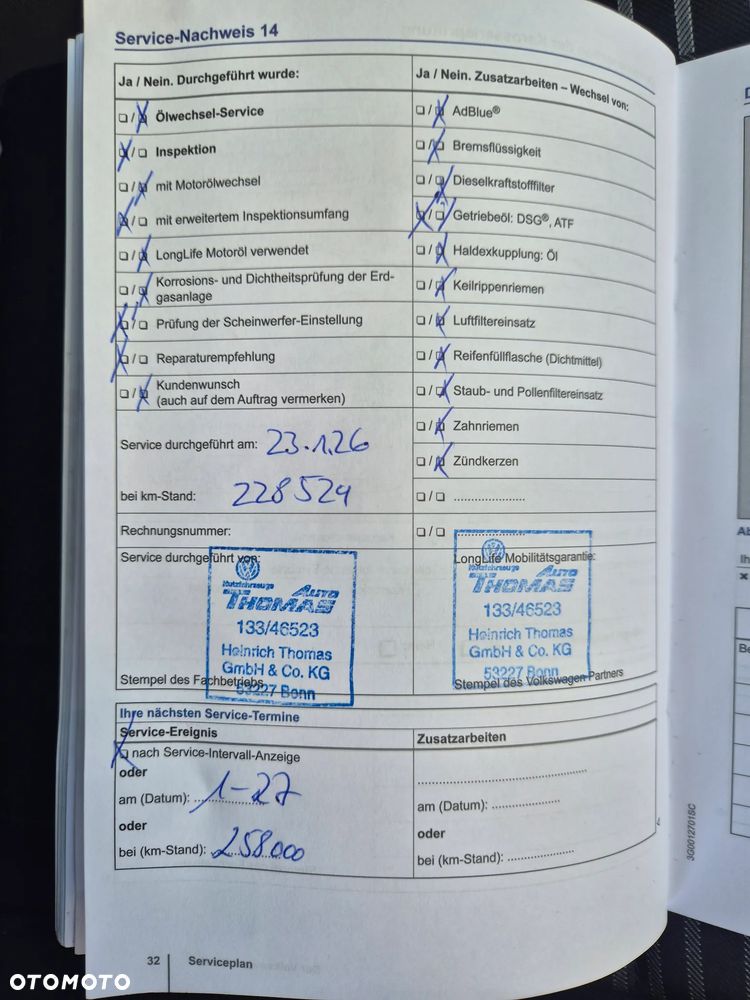 Service-Nachweis 14
Ja / Nein. Durchgeführt wurde:
❏ / ❏ Ölwechsel-Service
❏ / ❏ Inspektion
❏ / ❏ mit Motorölwechsel
❏ / ❏ mit erweitertem Inspektionsumfang
❏ / ❏ LongLife Motoröl verwendet
❏ / ❏ Korrosions- und Dichtheitsprüfung der Erd-
gasanlage
❏ / ❏ Prüfung der Scheinwerfer-Einstellung
❏ / ❏ Reparaturempfehlung
❏ / ❏ Kundenwunsch
(auch auf dem Auftrag vermerken)
Service durchgeführt am: 23.1.26
bei km-Stand: 228524
Rechnungsnummer:
Service durchgeführt von:
Nutzfahrzeuge
AUTO
THOMAS
133/46523
Heinrich Thomas
GmbH & Co. KG
53227 Bonn
Stempel des Fachbetriebs
Ja / Nein. Zusatzarbeiten – Wechsel von:
❏ / ❏ AdBlue®
❏ / ❏ Bremsflüssigkeit
❏ / ❏ Dieselkraftstofffilter
❏ / ❏ Getriebeöl: DSG®, ATF
❏ / ❏ Haldexkupplung: Öl
❏ / ❏ Keilrippenriemen
❏ / ❏ Luftfiltereinsatz
❏ / ❏ Reifenfüllflasche (Dichtmittel)
❏ / ❏ Staub- und Pollenfiltereinsatz
❏ / ❏ Zahnriemen
❏ / ❏ Zündkerzen
❏ / ❏ .....................
❏ / ❏ .....................
LongLife Mobilitätsgarantie:
Nutzfahrzeuge
AUTO
THOMAS
133/46523
Heinrich Thomas
GmbH & Co. KG
53227 Bonn
Stempel des Volkswagen Partners
Ihre nächsten Service-Termine
Service-Ereignis
❏ nach Service-Intervall-Anzeige
oder
am (Datum): 1-27
oder
bei (km-Stand): 258000
Zusatzarbeiten
am (Datum): .....................
oder
bei (km-Stand): .....................
32 Serviceplan
3G0012701SC
OTOMOTO